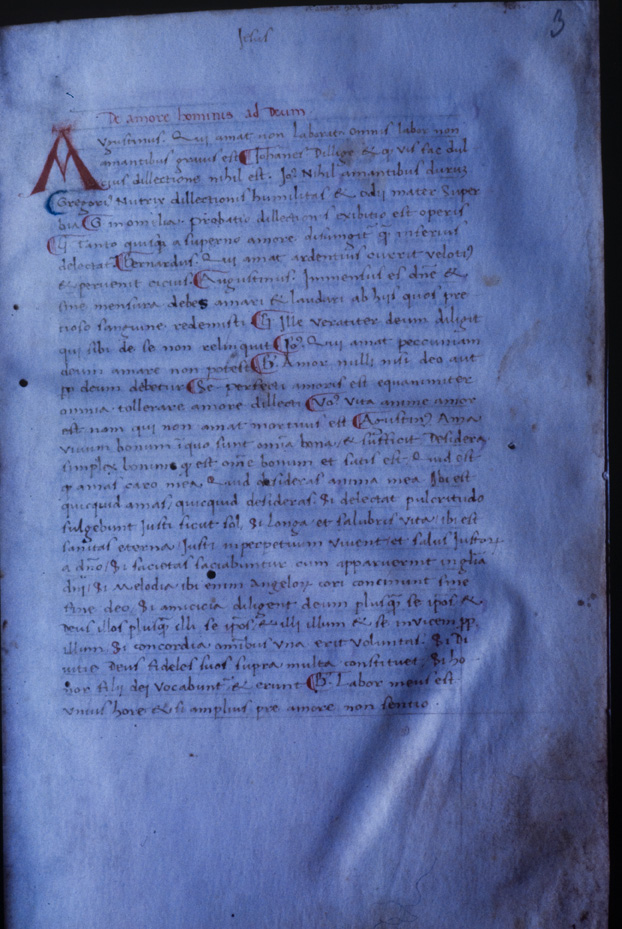 3
Jesus
De amore hominis ad Deum.
Augustinus. Qui amat non laborat. Omnis labor non
amantibus gravis est Johanes Dillige & qͥ vis fac dul
cius dillectione nihil est. Joꝰ Nihil amantibus duruʒ
Gregoriꝰ Nutrix dillectionis humilitas & odij mater super
bia G in omilia. Probatio dillectionis exibitio est operis
G Tanto quisqꝫ a superno amore disiungit qͣ inferius
delectat. Bernardus. Qui amat ardentius currit velotiꝰ
& pervenit cicius. Augustinus. Immensus es dn̄e &
sine mensura debes amari & laudari ab hijs quos pre
cioso sanguine redemisti G Ille veraciter deum diligit
qui sibi de se non relinquit Joꝰ. Qui amat peccuniam
deum amare non potest B. Amor nulli nisi deo aut
ꝓp deum debetur Se perfecti amoris est equanimiter
omnia tollerare amore dillecti Vꝰ Vita anime amor
est nam qui non amat mortuus est Agustinꝰ Ama
unum bonum ī quo sunt om̄ia bona, & sufficit Desidera
simplex bonum, qͩ est om̄e bonum et satis est. Quid est
qͩ amas caro mea, Quid desideras anima mea Ibi est
quicquid amas, quicquid desideras. Si delectat pulcritudo
fulgebunt Justi sicut sol. Si Longa et salubris vita, ibi est
sanitas eterna, Justi inperpetuum vivent et salus Justoꝝ
a dn̄o, Si societas saciabuntur cum apparuerint in gl̄ia
dn̄i, Si Melodia ibi enim Angeloꝝ cori concinunt sine
fine deo, Si amicicia diligent deum plusqͣ se ipos, &
Deus illos plusqͣ illi se ipos, & illi illum & se invicem ꝓp
illum. Si concordia omnibus una erit voluntas. Si Di
vitie Deus fideles suos supra multa constituet. Si ho
nor filij dei Vocabunt & erunt B. Labor meus est
unius hore & si amplius pre amore non sentio.